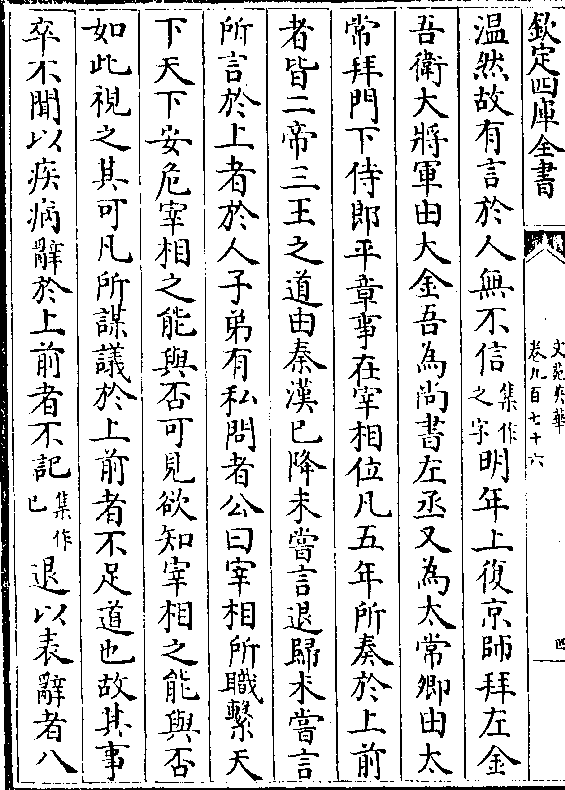 欽定四庫全書
文苑英華
卷九百七十六
四
温然故有言於人無不信集作之字明年上復京師拜左金
吾衛大將軍由大金吾為尚書左丞又為太常卿由太
常拜門下侍郎平章事在宰相位凡五年所奏於上前
者皆二帝三王之道由秦漢已降未嘗言退歸未嘗言
所言於上者於人子弟有私問者公曰宰相所職繫天
下天下安危宰相之能與否可見欲知宰相之能與否
如此視之其可凡所謀議於上前者不足道也故其事
卒不聞以疾病辭於上前者不記集作已退以表辭者八